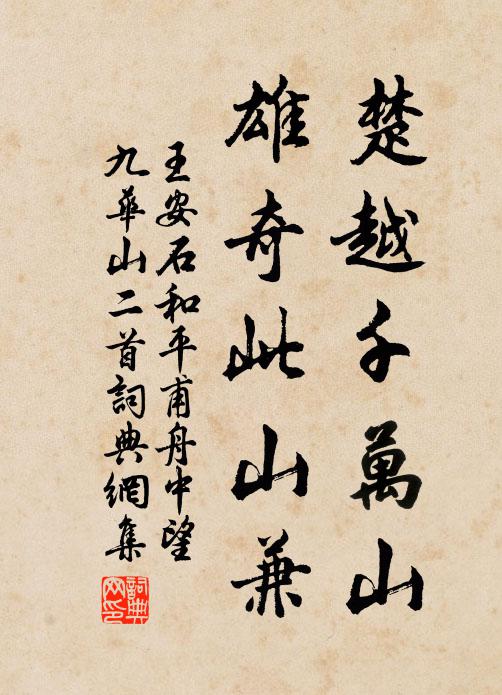 楚越千萬山
雄奇此山兼
王安石和平甫舟中望
九華山二首詞典網集
詞典
网印